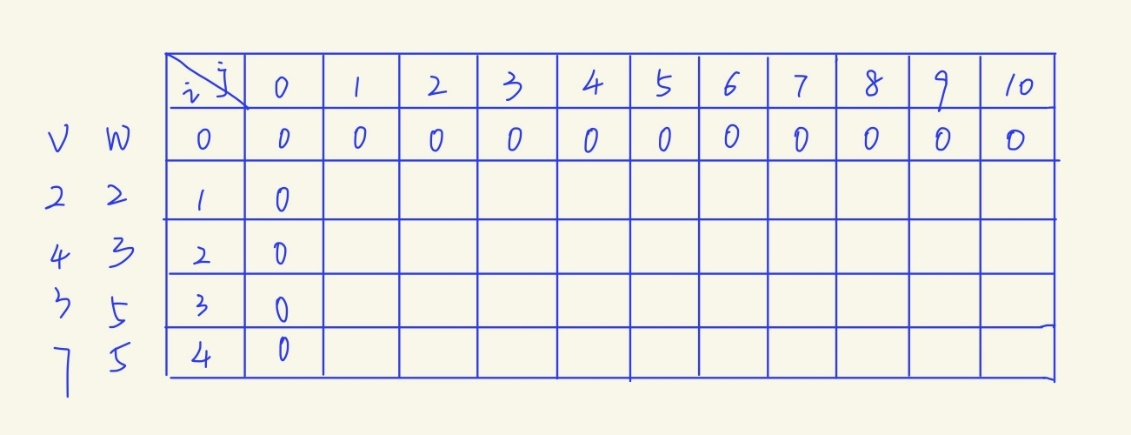 i j 0 1 2 3 4 5 6 7 8 9 10
V W 0 0 0 0 0 0 0 0 0 0 0 0
2 2 1 0
4 3 2 0
3 5 3 0
7 5 4 0